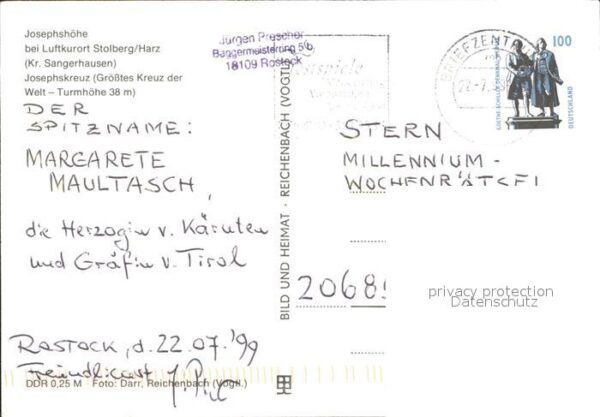 Josephshöhe
bei Luftkurort Stolberg/Harz
(Kr. Sangerhausen)
Josephskreuz (Größtes Kreuz der
Welt – Turmhöhe 38 m)
DER
SPITZNAME:
MARGARETE
MAULTASCH,
die Herzogin v. Kärnten
und Gräfin v. Tirol
ROSTOCK, d. 22.07.'99
Freundlichst
DDR 0,25 M Foto: Darr, Reichenbach (Vogtl.)
Jürgen Prescher
18109 Rostock
BILD UND HEIMAT · REICHENBACH (VOGTL)
BRIEFZENTRUM
100
GOETHE-SCHILLER-DENKMAL
DEUTSCHLAND
STERN
MILLENNIUM-
WOCHENRÄTSEL
2068
privacy protection
Datenschutz